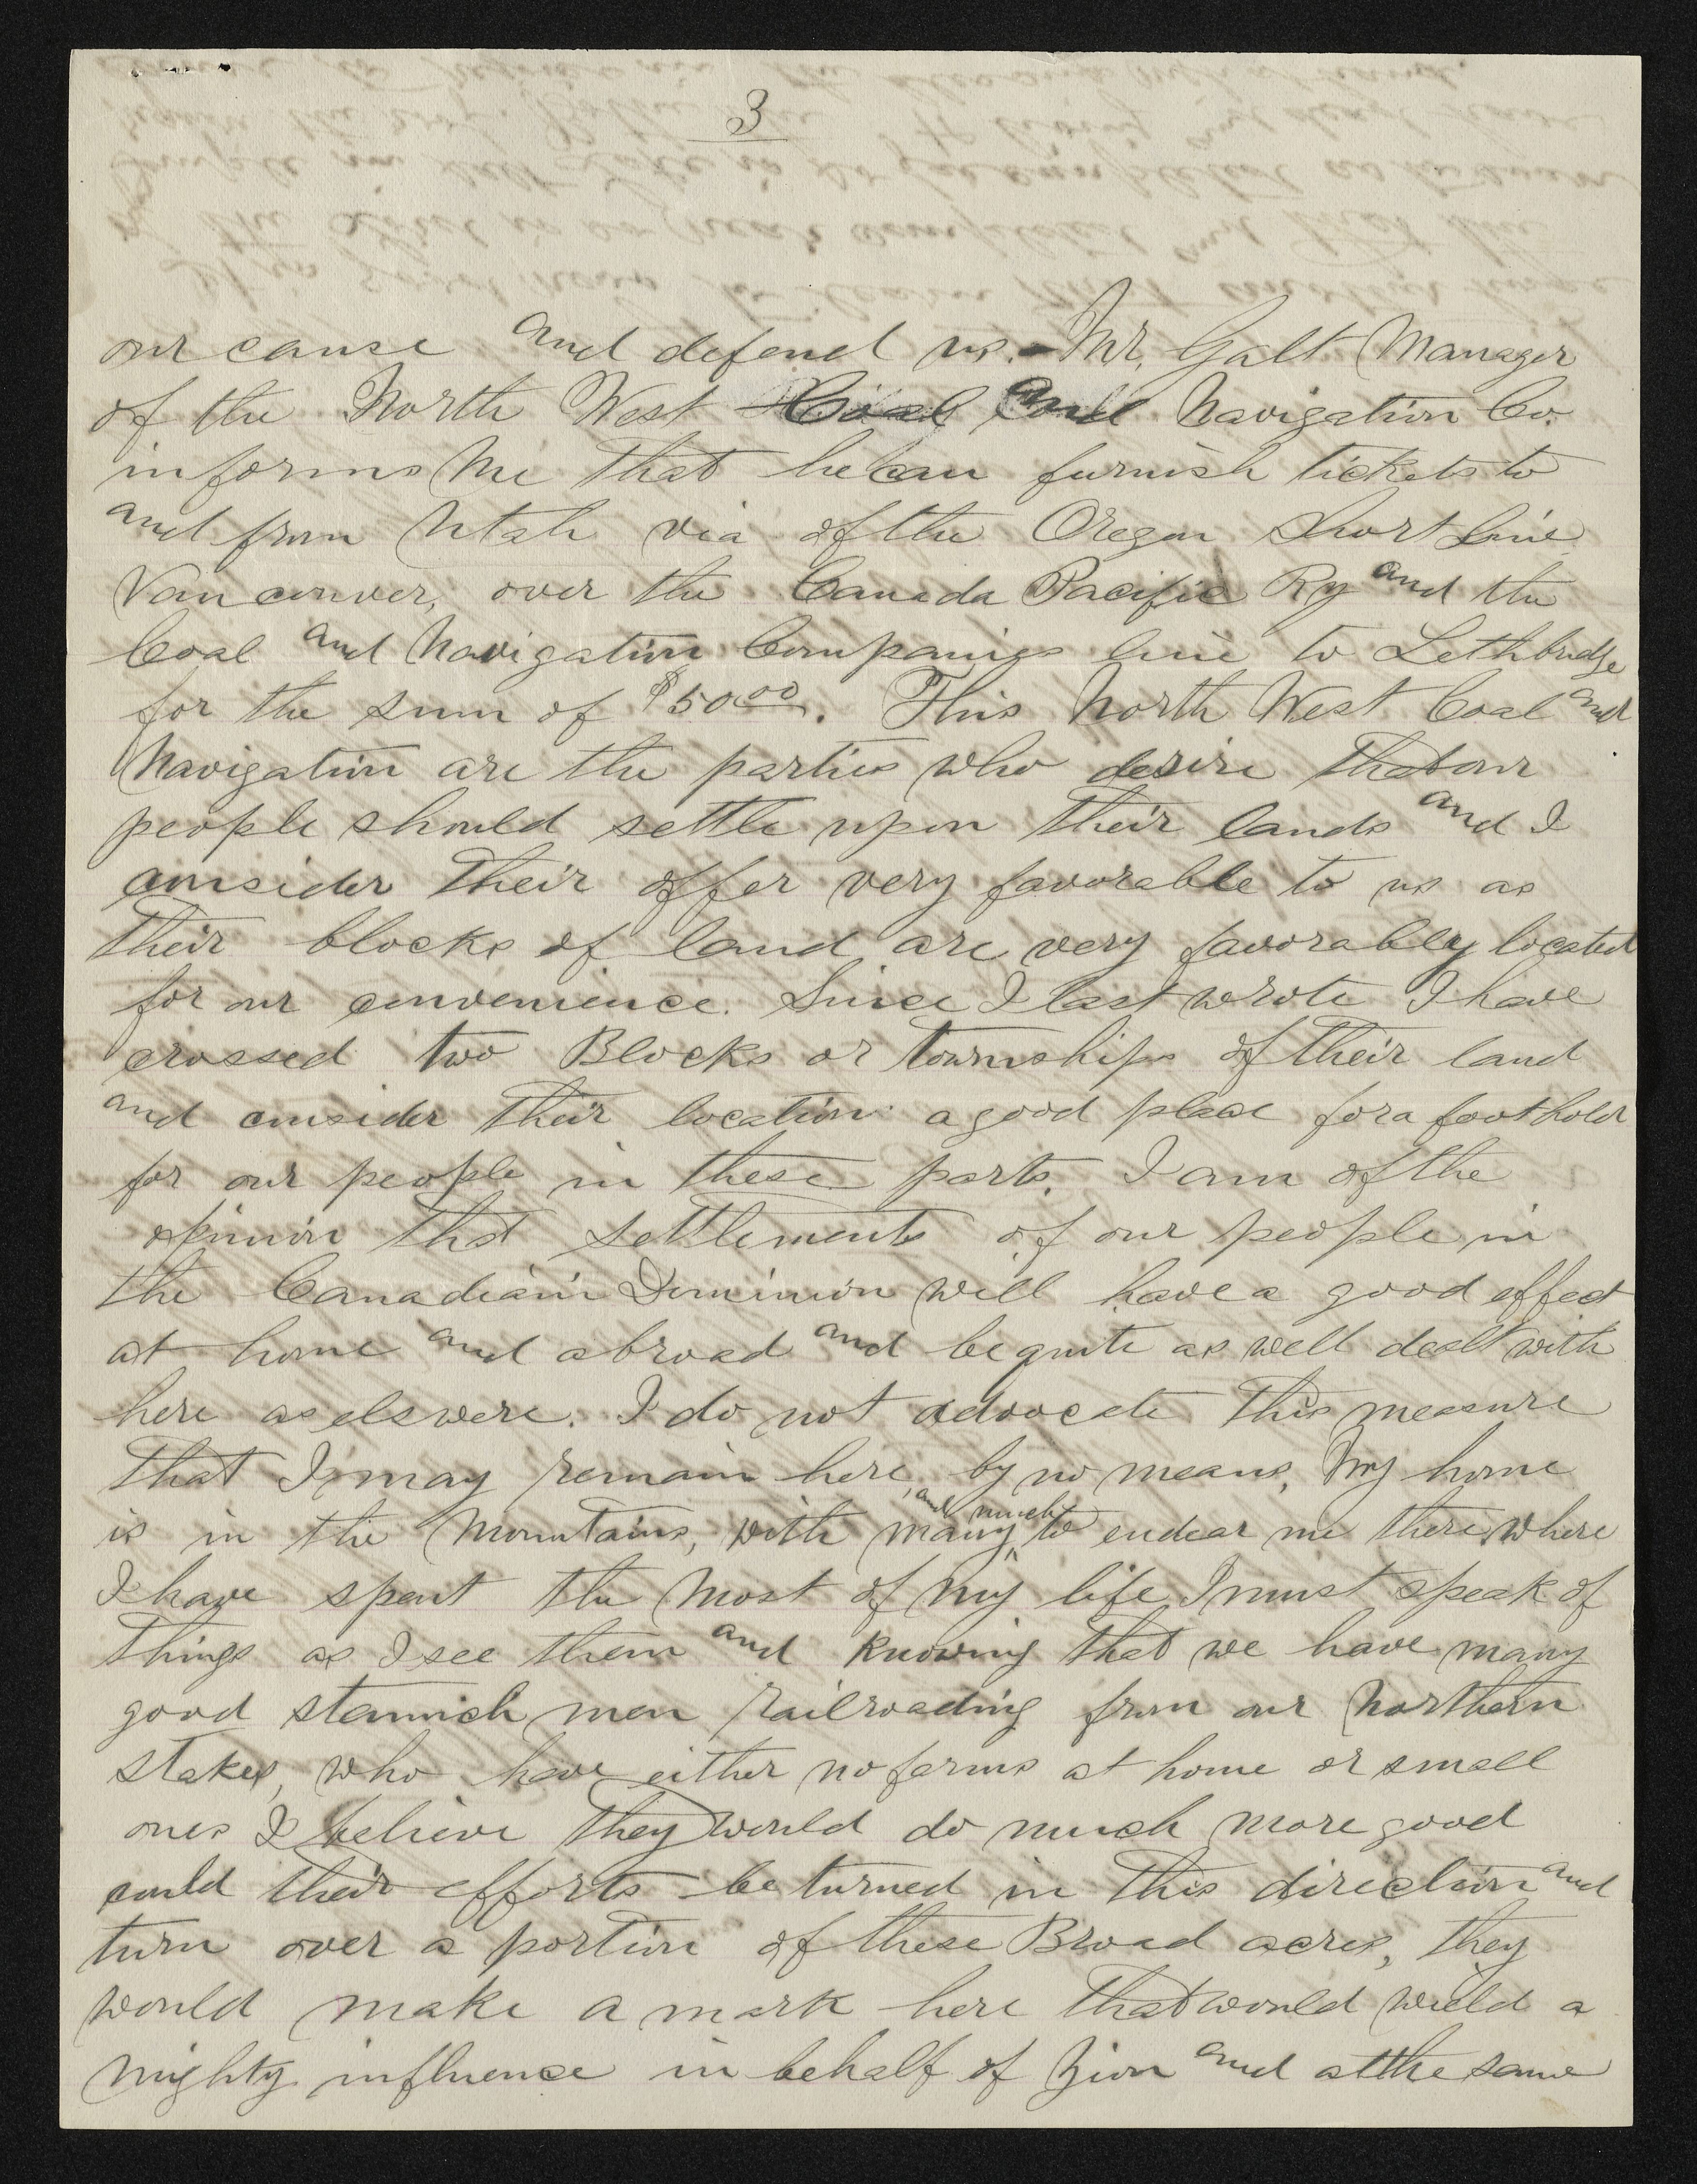 3
our cause and defend us. - Mr. Galt Manager
of the North West Coal and Navigation Co.
informs me that he can furnish tickets to
and from Utah via of the Oregon Short Line
Vancouver, over the Canada Pacific Ry and the
Coal and Navigation Companies line to Lethbridge
for the sum of $50.00. This North West Coal and
Navigation are the parties who desire that our
people should settle upon their lands and I
consider their offer very favorable to us as
their blocks of land are very favorably located
for our convenience. Since I last wrote I have
crossed two Blocks or townships of their land
and consider their location a good place for a foothold
for our people in these parts. I am of the
opinion that settlements of our people in
the Canadian Dominion will have a good effect
at home and abroad and be quite as well dealt with
here as elswere. I do not advocate this measure
that I may remain here, by no means, My home
is in the Mountains, with many, and much to endear me there where
I have spent the most of my life I must speak of
things as I see them and knowing that we have many
good staunch men railroading from our Northern
stakes, who have either no farms at home or small
ones I believe they would do much more good
could their efforts be turned in this direction and
turn over a portion of these Broad acres, they
would make a mark here that would wield a
mighty influence in behalf of Zion and at the same